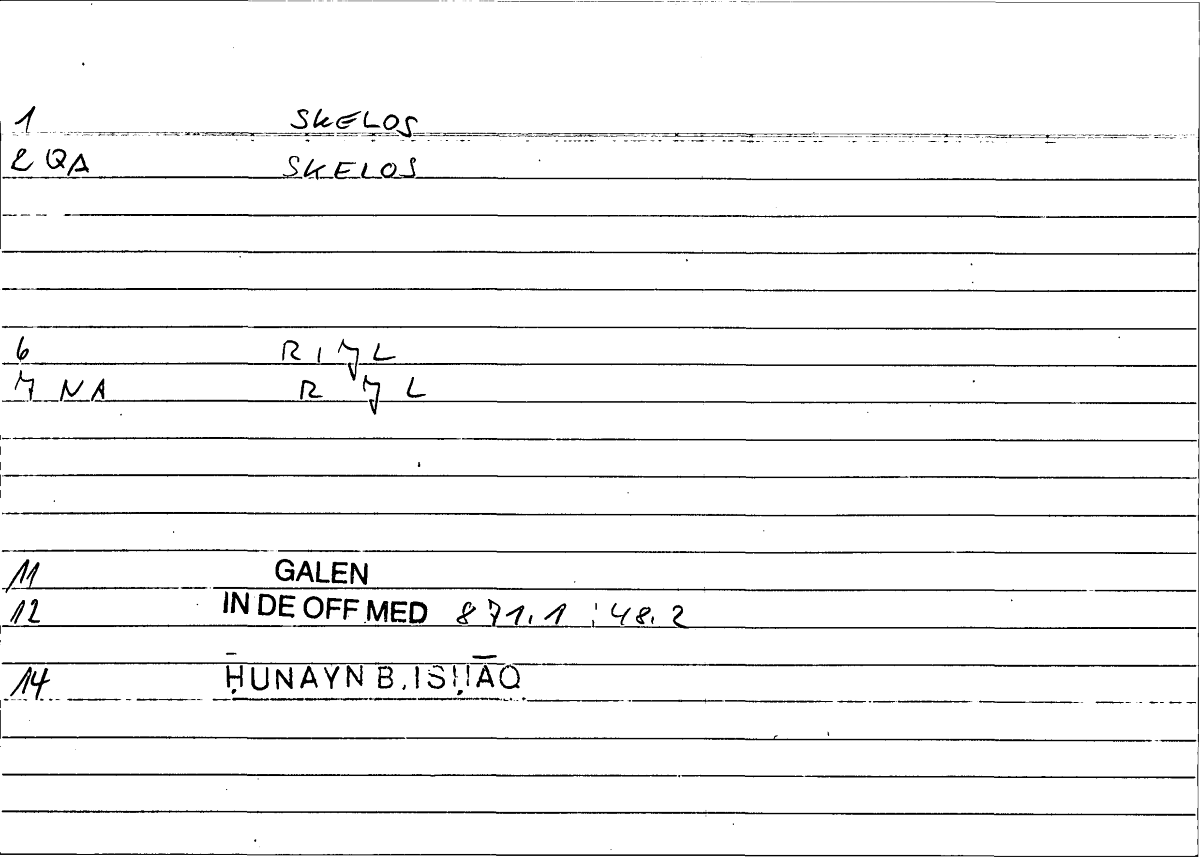 1 SKELOS
2 QA SKELOS
6 RIJL
7 NA R J L
11 GALEN
12 IN DE OFF MED 871.1 ; 48.2
14 ḤUNAYN B. ISḤĀQ